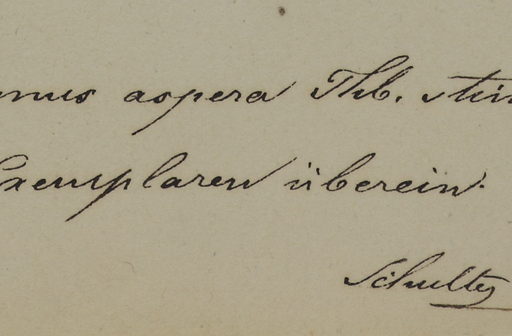 mus aspera Thb. stim
Exemplaren überein.
Schultz